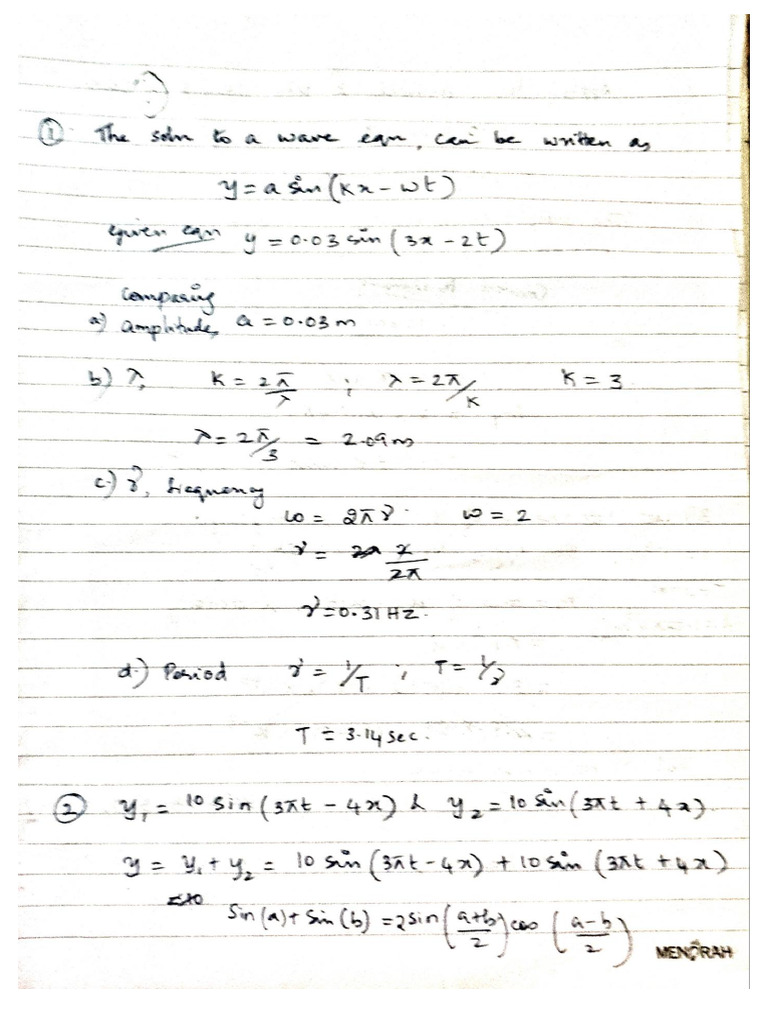 ① The soln to a wave eqn, can be written as
y = a sin (kx - wt)
given eqn y = 0.03 sin (3x - 2t)
Comparing
a) amplitude, a = 0.03 m
b) λ, K = 2π/λ ; λ = 2π/K K = 3
λ = 2π/3 = 2.09 m
c) ν, frequency
ω = 2πν ω = 2
ν = 2/2π
ν = 0.31 HZ.
d.) Period ν = 1/T ; T = 1/ν
T = 3.14 sec.
② y₁ = 10 sin (3πt - 4x) & y₂ = 10 sin (3πt + 4x)
y = y₁ + y₂ = 10 sin (3πt - 4x) + 10 sin (3πt + 4x)
Sin (a) + Sin (b) = 2 sin ((a+b)/2) cos ((a-b)/2)
MENORAH